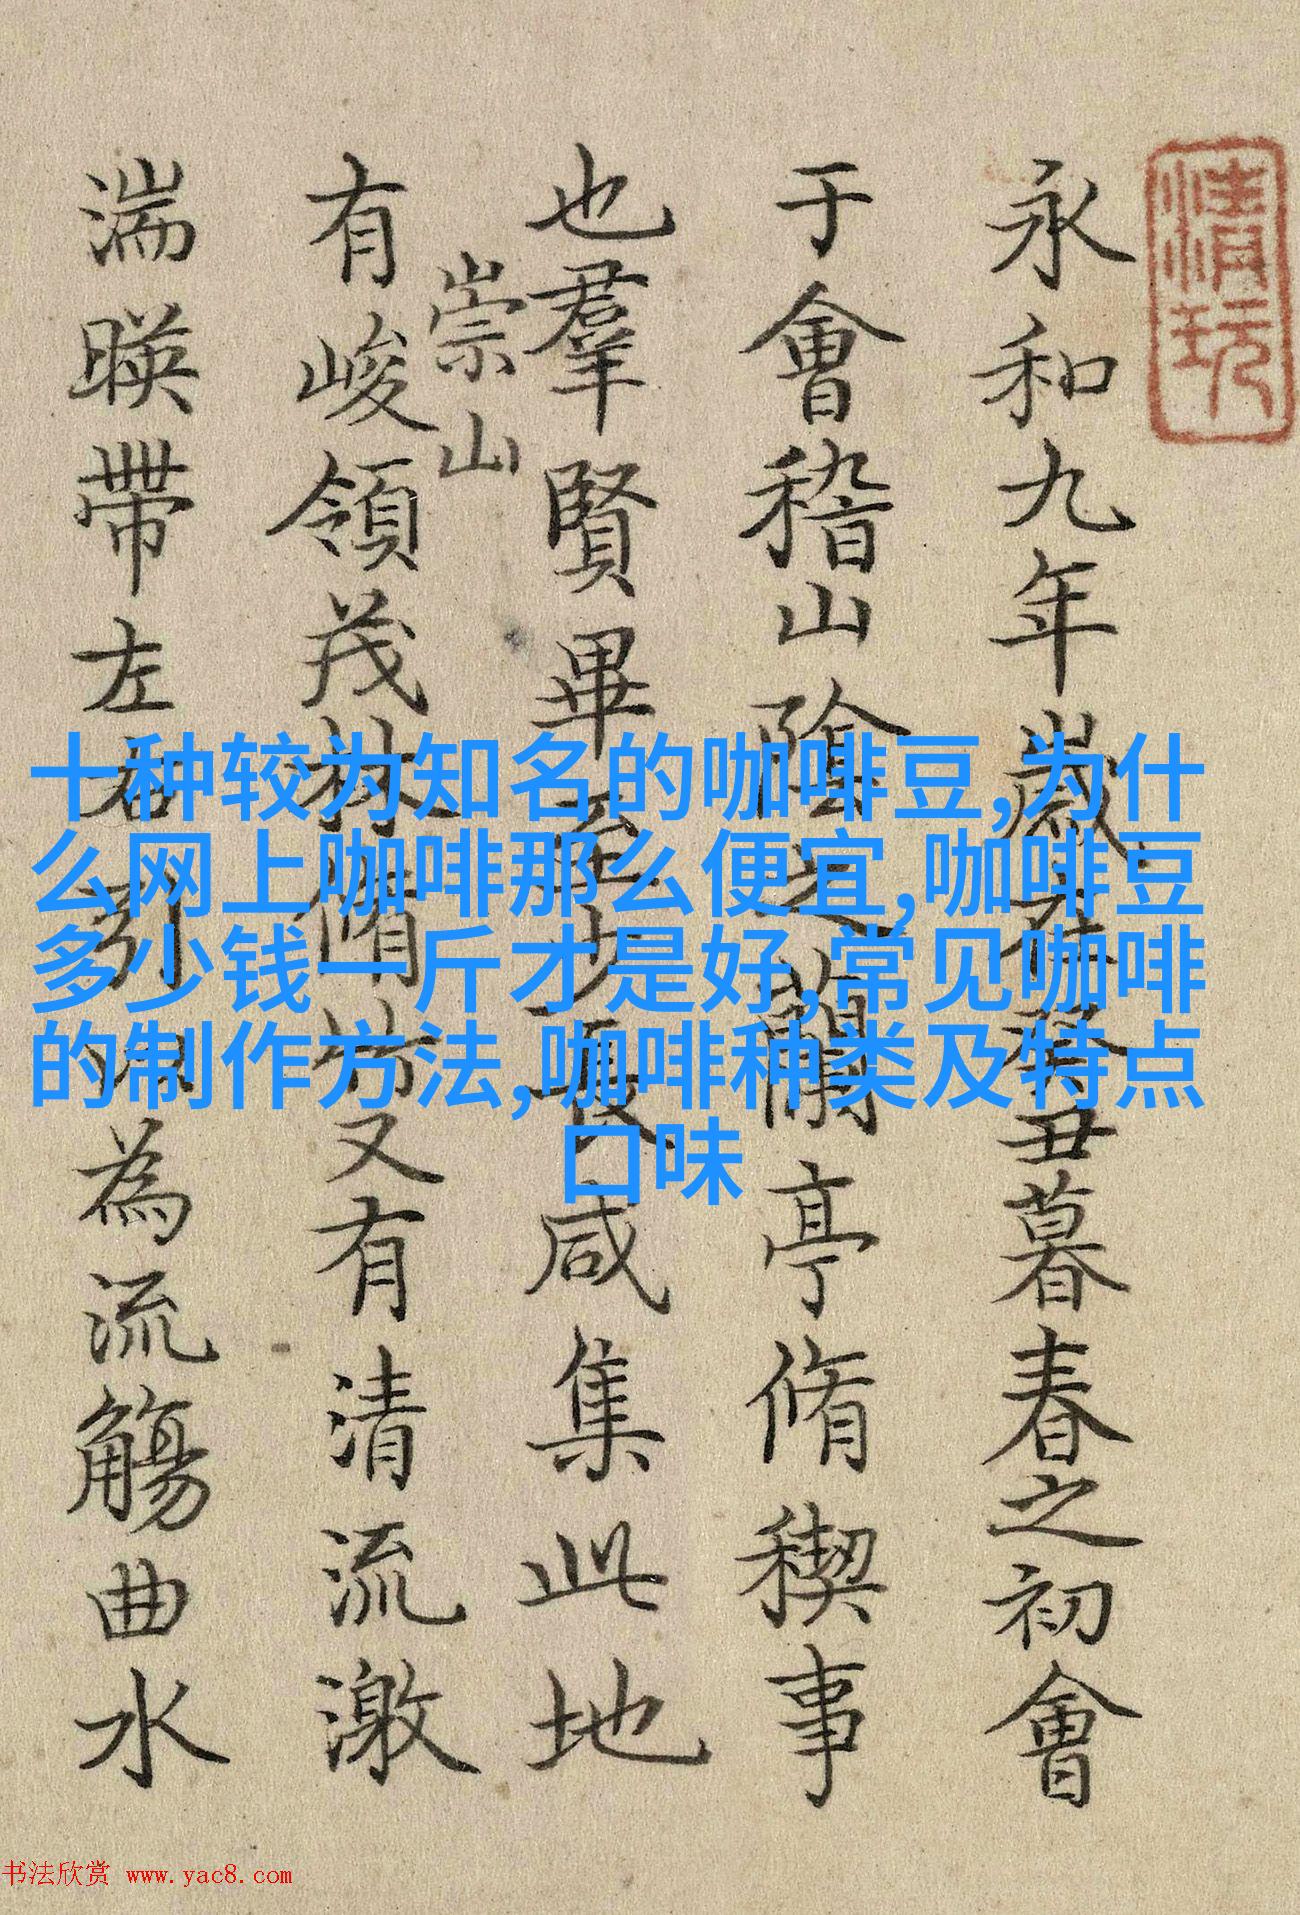 清玩
永和九年歲在癸丑暮春之初會
于會稽山陰之蘭亭脩稧事
也羣賢畢至少長咸集此地
崇山
有峻領茂林脩竹又有清流激
湍暎帶左右引以為流觴曲水
十种较为知名的咖啡豆,为什
么网上咖啡那么便宜,咖啡豆
多少钱一斤才是好,常见咖啡
的制作方法,咖啡种类及特点
口味
书法欣赏 www.yac8.com